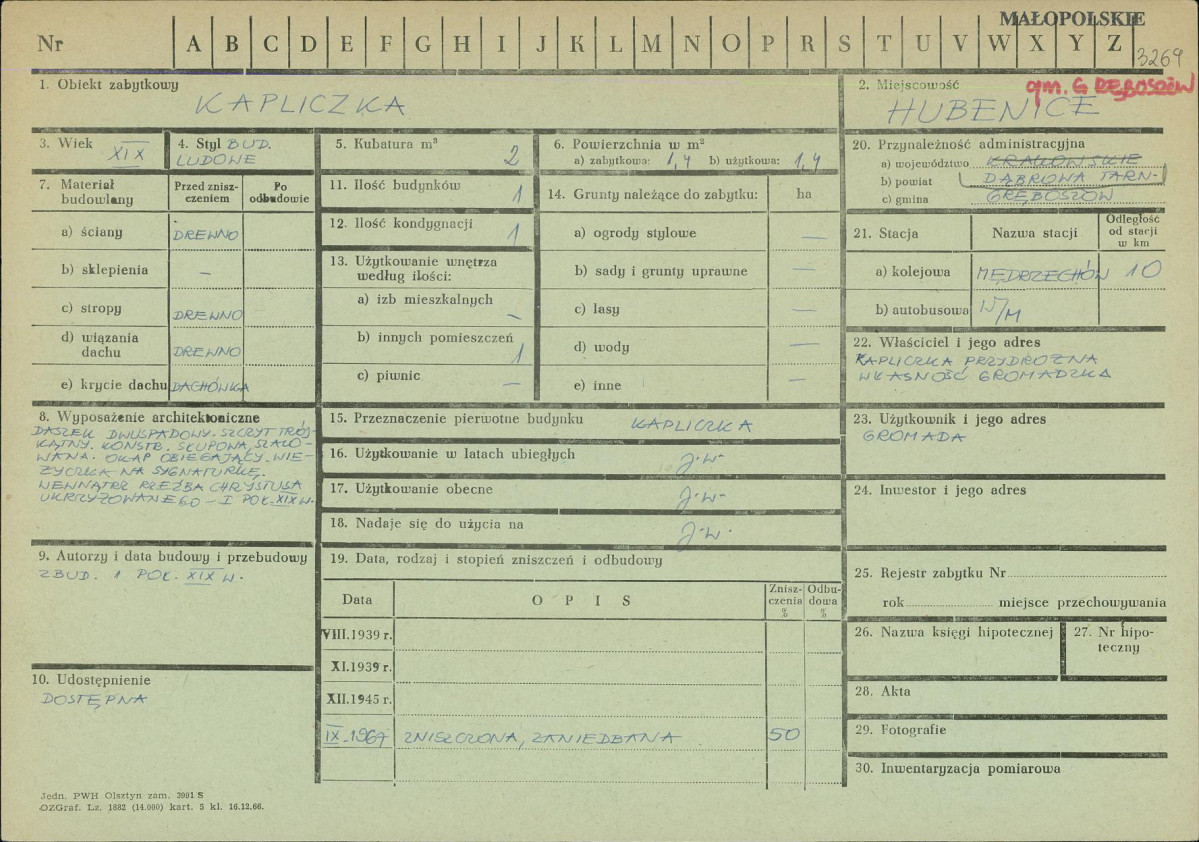 MAŁOPOLSKIE
Nr A B C D E F G H I J K L M N O P R S T U V W X Y Z
3269
1. Obiekt zabytkowy
KAPLICZKA
2. Miejscowość
gm. GRĘBOSZÓW
HUBENICE
3. Wiek
XIX
4. Styl BUD.
LUDOWE
5. Kubatura m³
2
6. Powierzchnia w m²
a) zabytkowa: 1,4 b) użytkowa: 1,4
20. Przynależność administracyjna
a) województwo KRAKOWSKIE
b) powiat DĄBROWA TARN-
c) gmina GRĘBOSZÓW
7. Materiał budowlany
Przed zniszczeniem
Po odbudowie
a) ściany DREWNO
b) sklepienia –
c) stropy DREWNO
d) wiązania dachu DREWNO
e) krycie dachu DACHÓWKA
11. Ilość budynków 1
12. Ilość kondygnacji 1
13. Użytkowanie wnętrza
według ilości:
a) izb mieszkalnych –
b) innych pomieszczeń 1
c) piwnic –
14. Grunty należące do zabytku: ha
a) ogrody stylowe –
b) sady i grunty uprawne –
c) lasy –
d) wody –
e) inne –
21. Stacja
Nazwa stacji
Odległość
od stacji
w km
a) kolejowa MĘDRZECHÓW 10
b) autobusowa N/M
22. Właściciel i jego adres
KAPLICZKA PRZYDROŻNA
WŁASNOŚĆ GROMADZKA
8. Wyposażenie architektoniczne
DASZEK DWUSPADOWY. SZCZYT TRÓJ-
KĄTNY. KONSTR. SŁUPOWA, SZALO-
WANA. OKAP OBIEGAJĄCY. WIE-
ŻYCZKA NA SYGNATURKĘ.
WEWNĄTRZ RZEŹBA CHRYSTUSA
UKRZYŻOWANEGO – I POŁ. XIX W.
15. Przeznaczenie pierwotne budynku KAPLICZKA
16. Użytkowanie w latach ubiegłych j.w-
17. Użytkowanie obecne j.w-
18. Nadaje się do użycia na j.w.
23. Użytkownik i jego adres
GROMADA
24. Inwestor i jego adres
9. Autorzy i data budowy i przebudowy
ZBUD. 1 POŁ. XIX W.
19. Data, rodzaj i stopień zniszczeń i odbudowy
Data
O P I S
Znisz-
czenia
%
Odbu-
dowa
%
VIII.1939 r.
XI.1939 r.
XII.1945 r.
IX-1967 ZNISZCZONA, ZANIEDBANA 50
25. Rejestr zabytku Nr
rok miejsce przechowywania
26. Nazwa księgi hipotecznej
27. Nr hipo-
teczny
10. Udostępnienie
DOSTĘPNA
28. Akta
29. Fotografie
30. Inwentaryzacja pomiarowa
Jedn. PWH Olsztyn zam. 3991 S
OZGraf. Lz. 1882 (14.000) kart. 5 kl. 16.12.66.